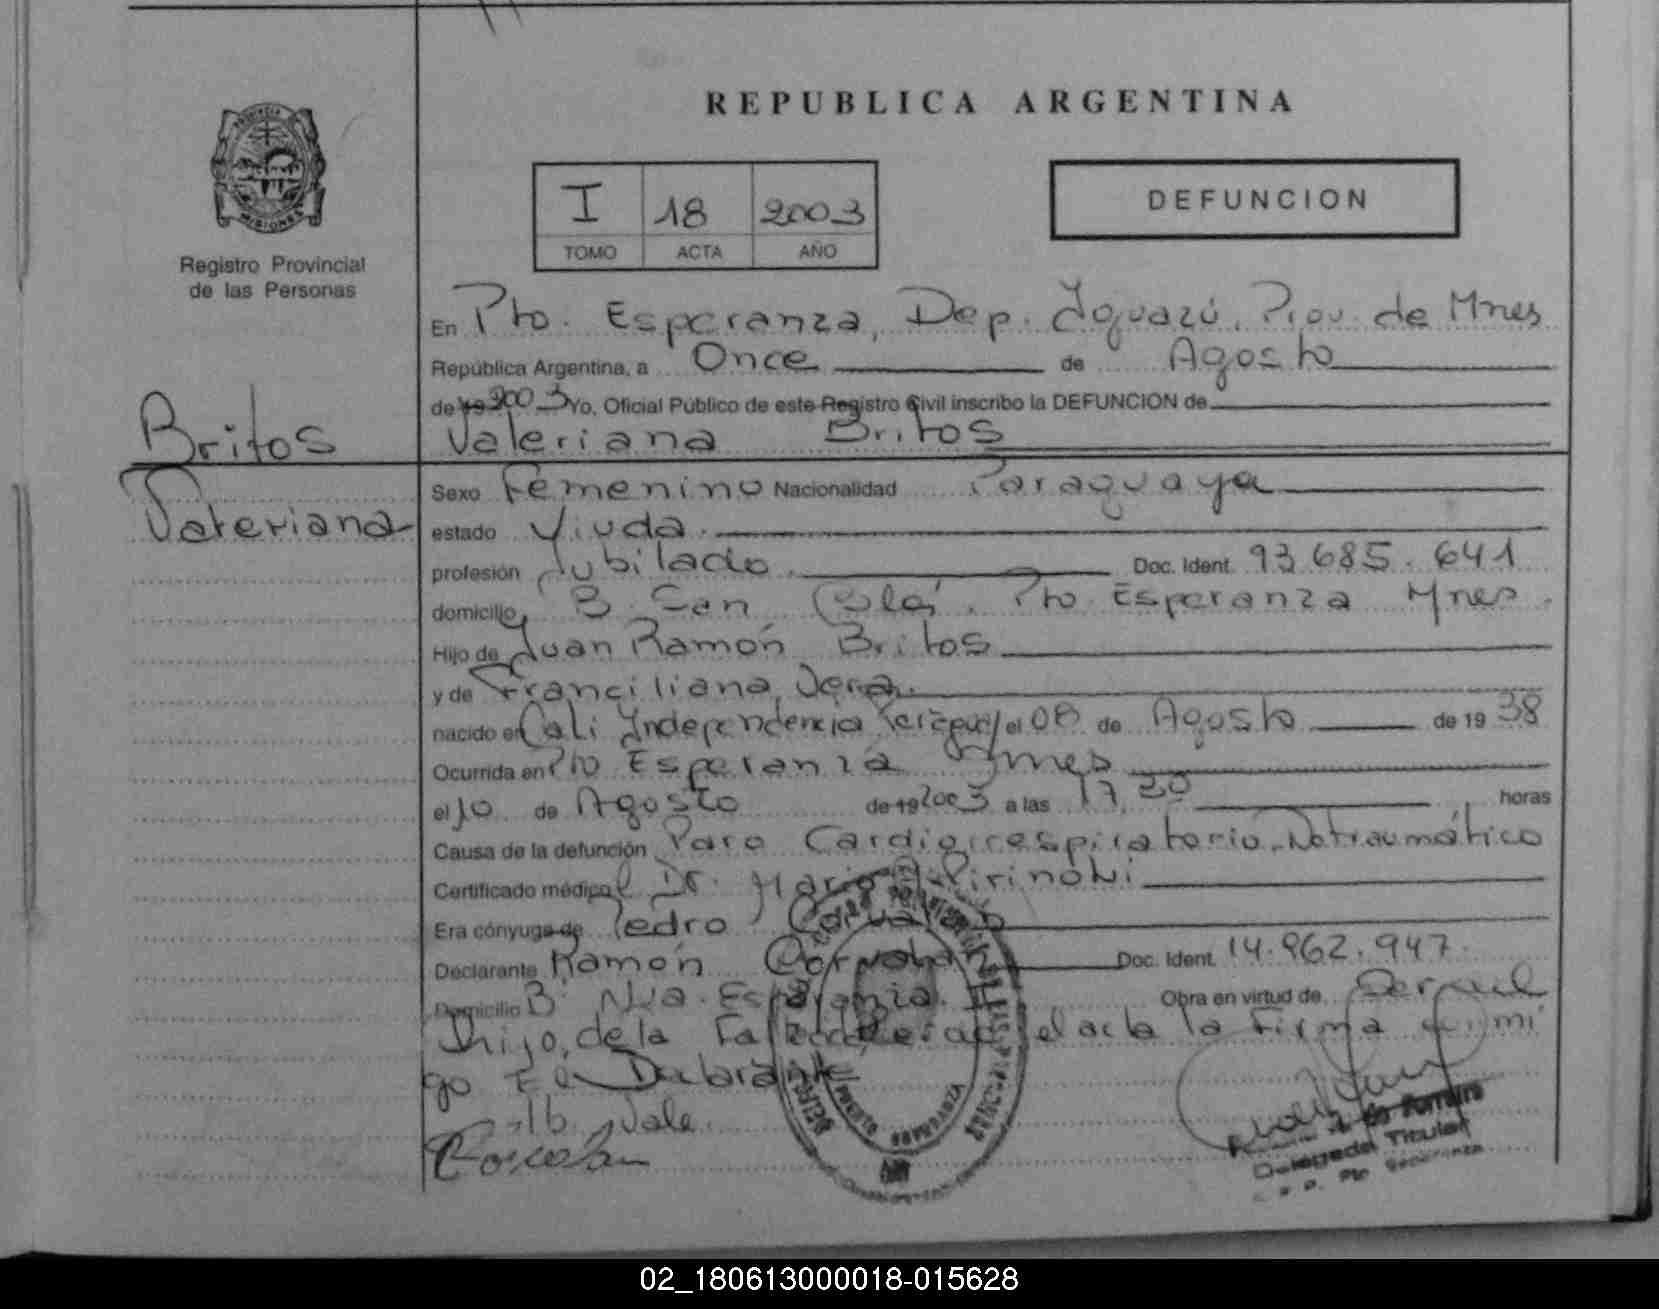 REPUBLICA ARGENTINA
PROVINCIA
MISIONES
Registro Provincial
de las Personas
I 18 2003
TOMO ACTA AÑO
DEFUNCION
En Pto. Esperanza, Dep. Iguazú, Prov. de Mnes
República Argentina, a Once de Agosto
de 19 2003 Yo, Oficial Público de este Registro Civil inscribo la DEFUNCION de
Valeriana Britos
Britos
Valeriana
Sexo Femenino Nacionalidad Paraguaya
estado Viuda.
profesión Jubilado. Doc. Ident. 93.685.641
domicilio B. San Pto Esperanza Mnes.
Hijo de Juan Ramón Britos
y de Franciliana Vera.
nacido en Cali Independencia Paraguay el 08 de Agosto de 19 38
Ocurrida en Pto Esperanza Mnes
el 10 de Agosto de 19 2003 a las 17,30 horas
Causa de la defunción Paro Cardiorrespiratorio No traumático
Certificado médico Dr. Mario
Era cónyuge de Pedro
Declarante Ramón Doc. Ident. 14.962.947.
Domicilio B: Nva. Esperanza. Obra en virtud de
hijo, de la el acta la Firma con mi
go El Declarante
Vale
Delegada Titular
02_180613000018-015628